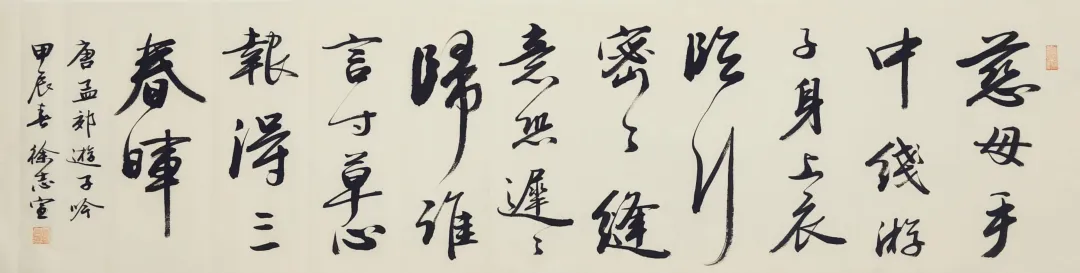 慈母手
中线游
子身上衣
临行
密〻缝
意恐遲〻
歸谁
言寸草心
報得三
春暉
唐孟郊遊子吟
甲辰春徐志宣